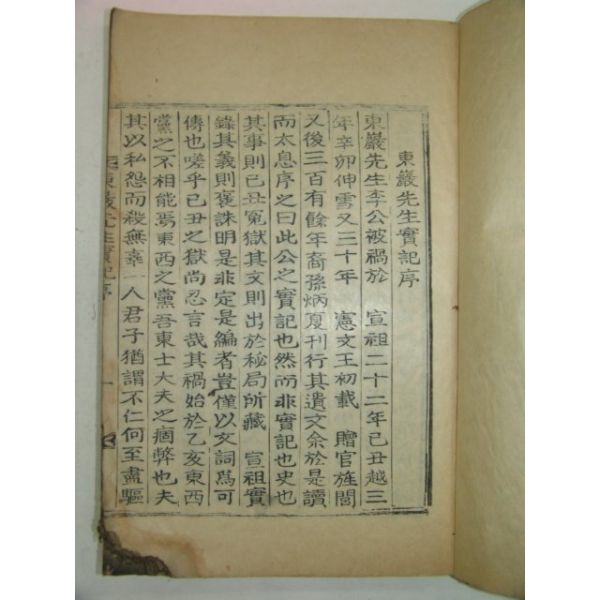 東巖先生實記序
東巖先生李公被禍於 宣祖二十二年己丑越三
年辛卯伸雪又三十年 憲文王初載 贈官旌閭
又後三百有餘年裔孫炳夏刊行其遺文余於是讀
而太息序之曰此公之實記也然而非實記也史也
其事則己丑冤獄其文則出於秘局所藏 宣祖實
錄其義則褒誅明是非定是編者豈僅以文詞爲可
傳也嗟乎己丑之獄尚忍言哉其禍始於乙亥東西
黨之不相能焉東西之黨吾東士大夫之痼弊也夫
其以私怨而殺無辜一人君子猶謂不仁何至盡驅
東巖先生實記序
一